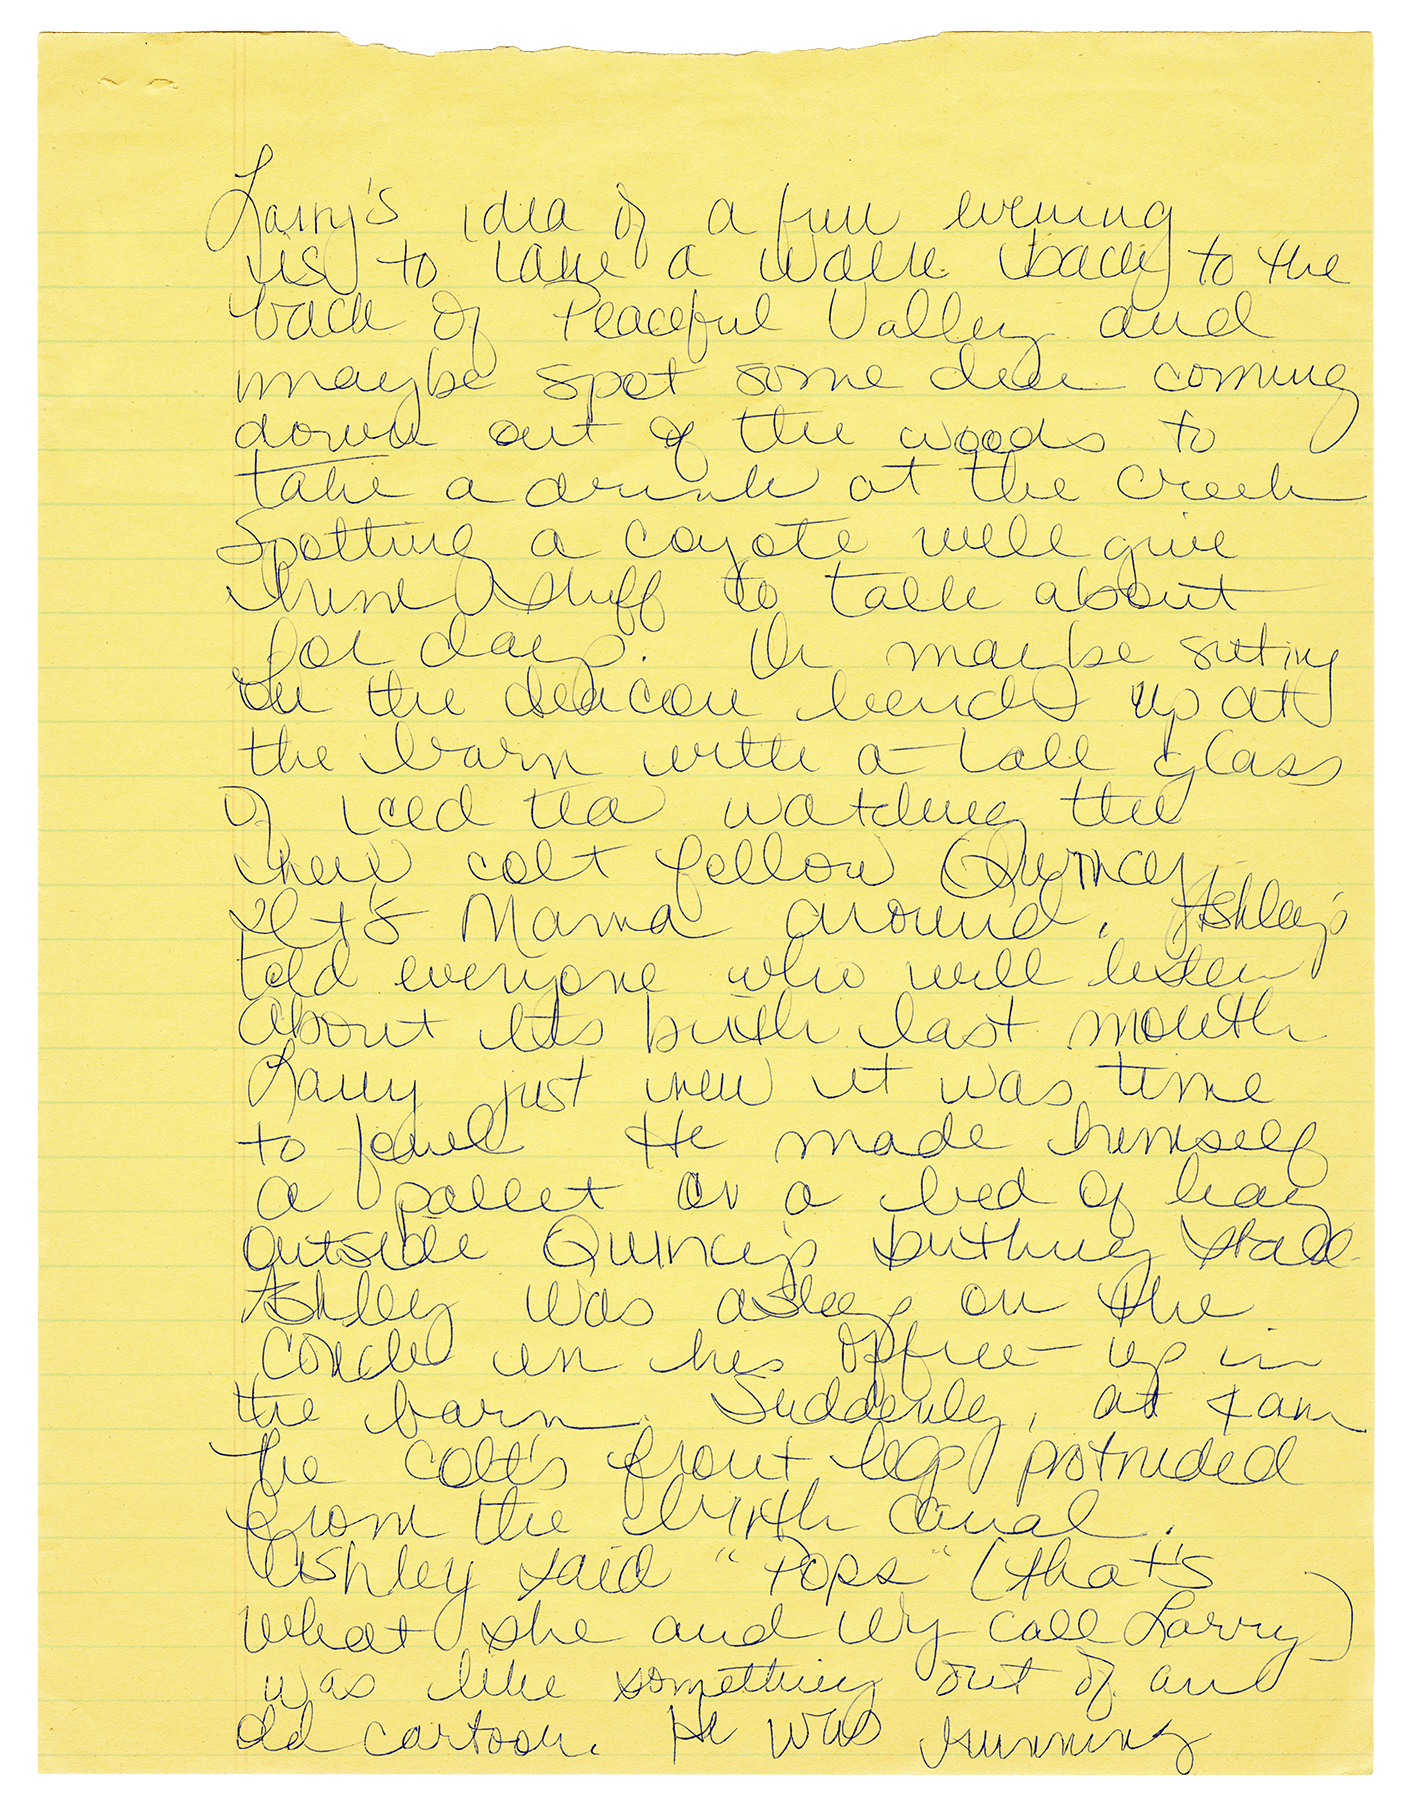 Larry's idea of a fun evening
is to take a walk back to the
back of Peaceful Valley and
maybe spot some deer coming
down out of the woods to
take a drink at the creek
Spotting a coyote will give
him stuff to talk about
for days. Or maybe sitting
on the deacon bench up at
the barn with a tall glass
of iced tea watching the
new colt follow Quincy,
it's Mama around. Ashley's
told everyone who will listen
about its birth last month
Larry just knew it was time
to foal He made himself
a pallet on a bed of hay
outside Quincy's birthing stall
Ashley was asleep on the
couch in his office up in
the barn. Suddenly, at 4am
the colt's front legs protruded
from the birth canal.
Ashley said "Pops" (that's
what she and Wy call Larry)
was like something out of an
old cartoon. He was running